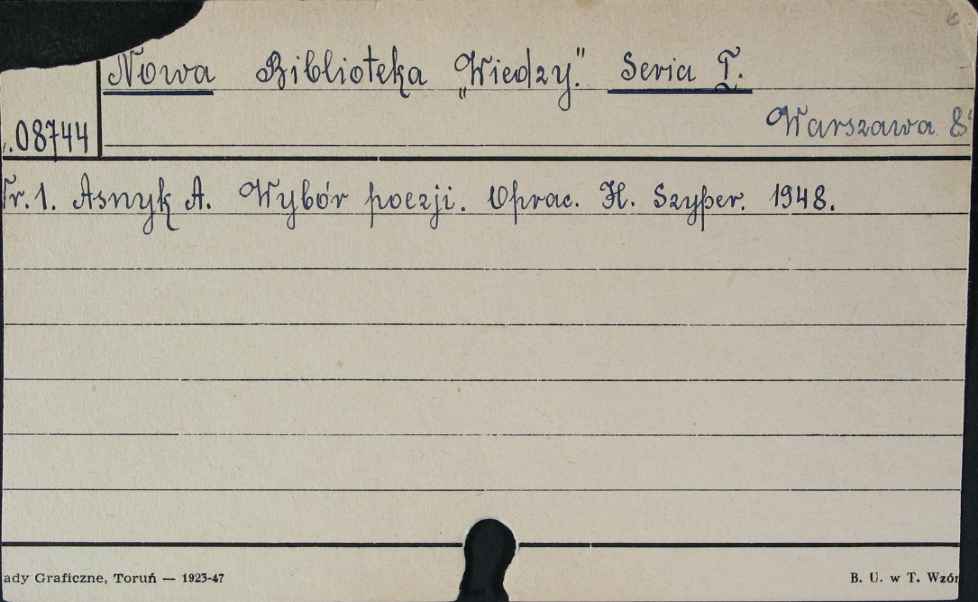 Nowa Biblioteka „Wiedzy." Seria I.
.08744
Warszawa 8°
Nr. 1. Asnyk A. Wybór poezji. Oprac. H. Szyper. 1948.
ady Graficzne, Toruń — 1923-47
B. U. w T. Wzór